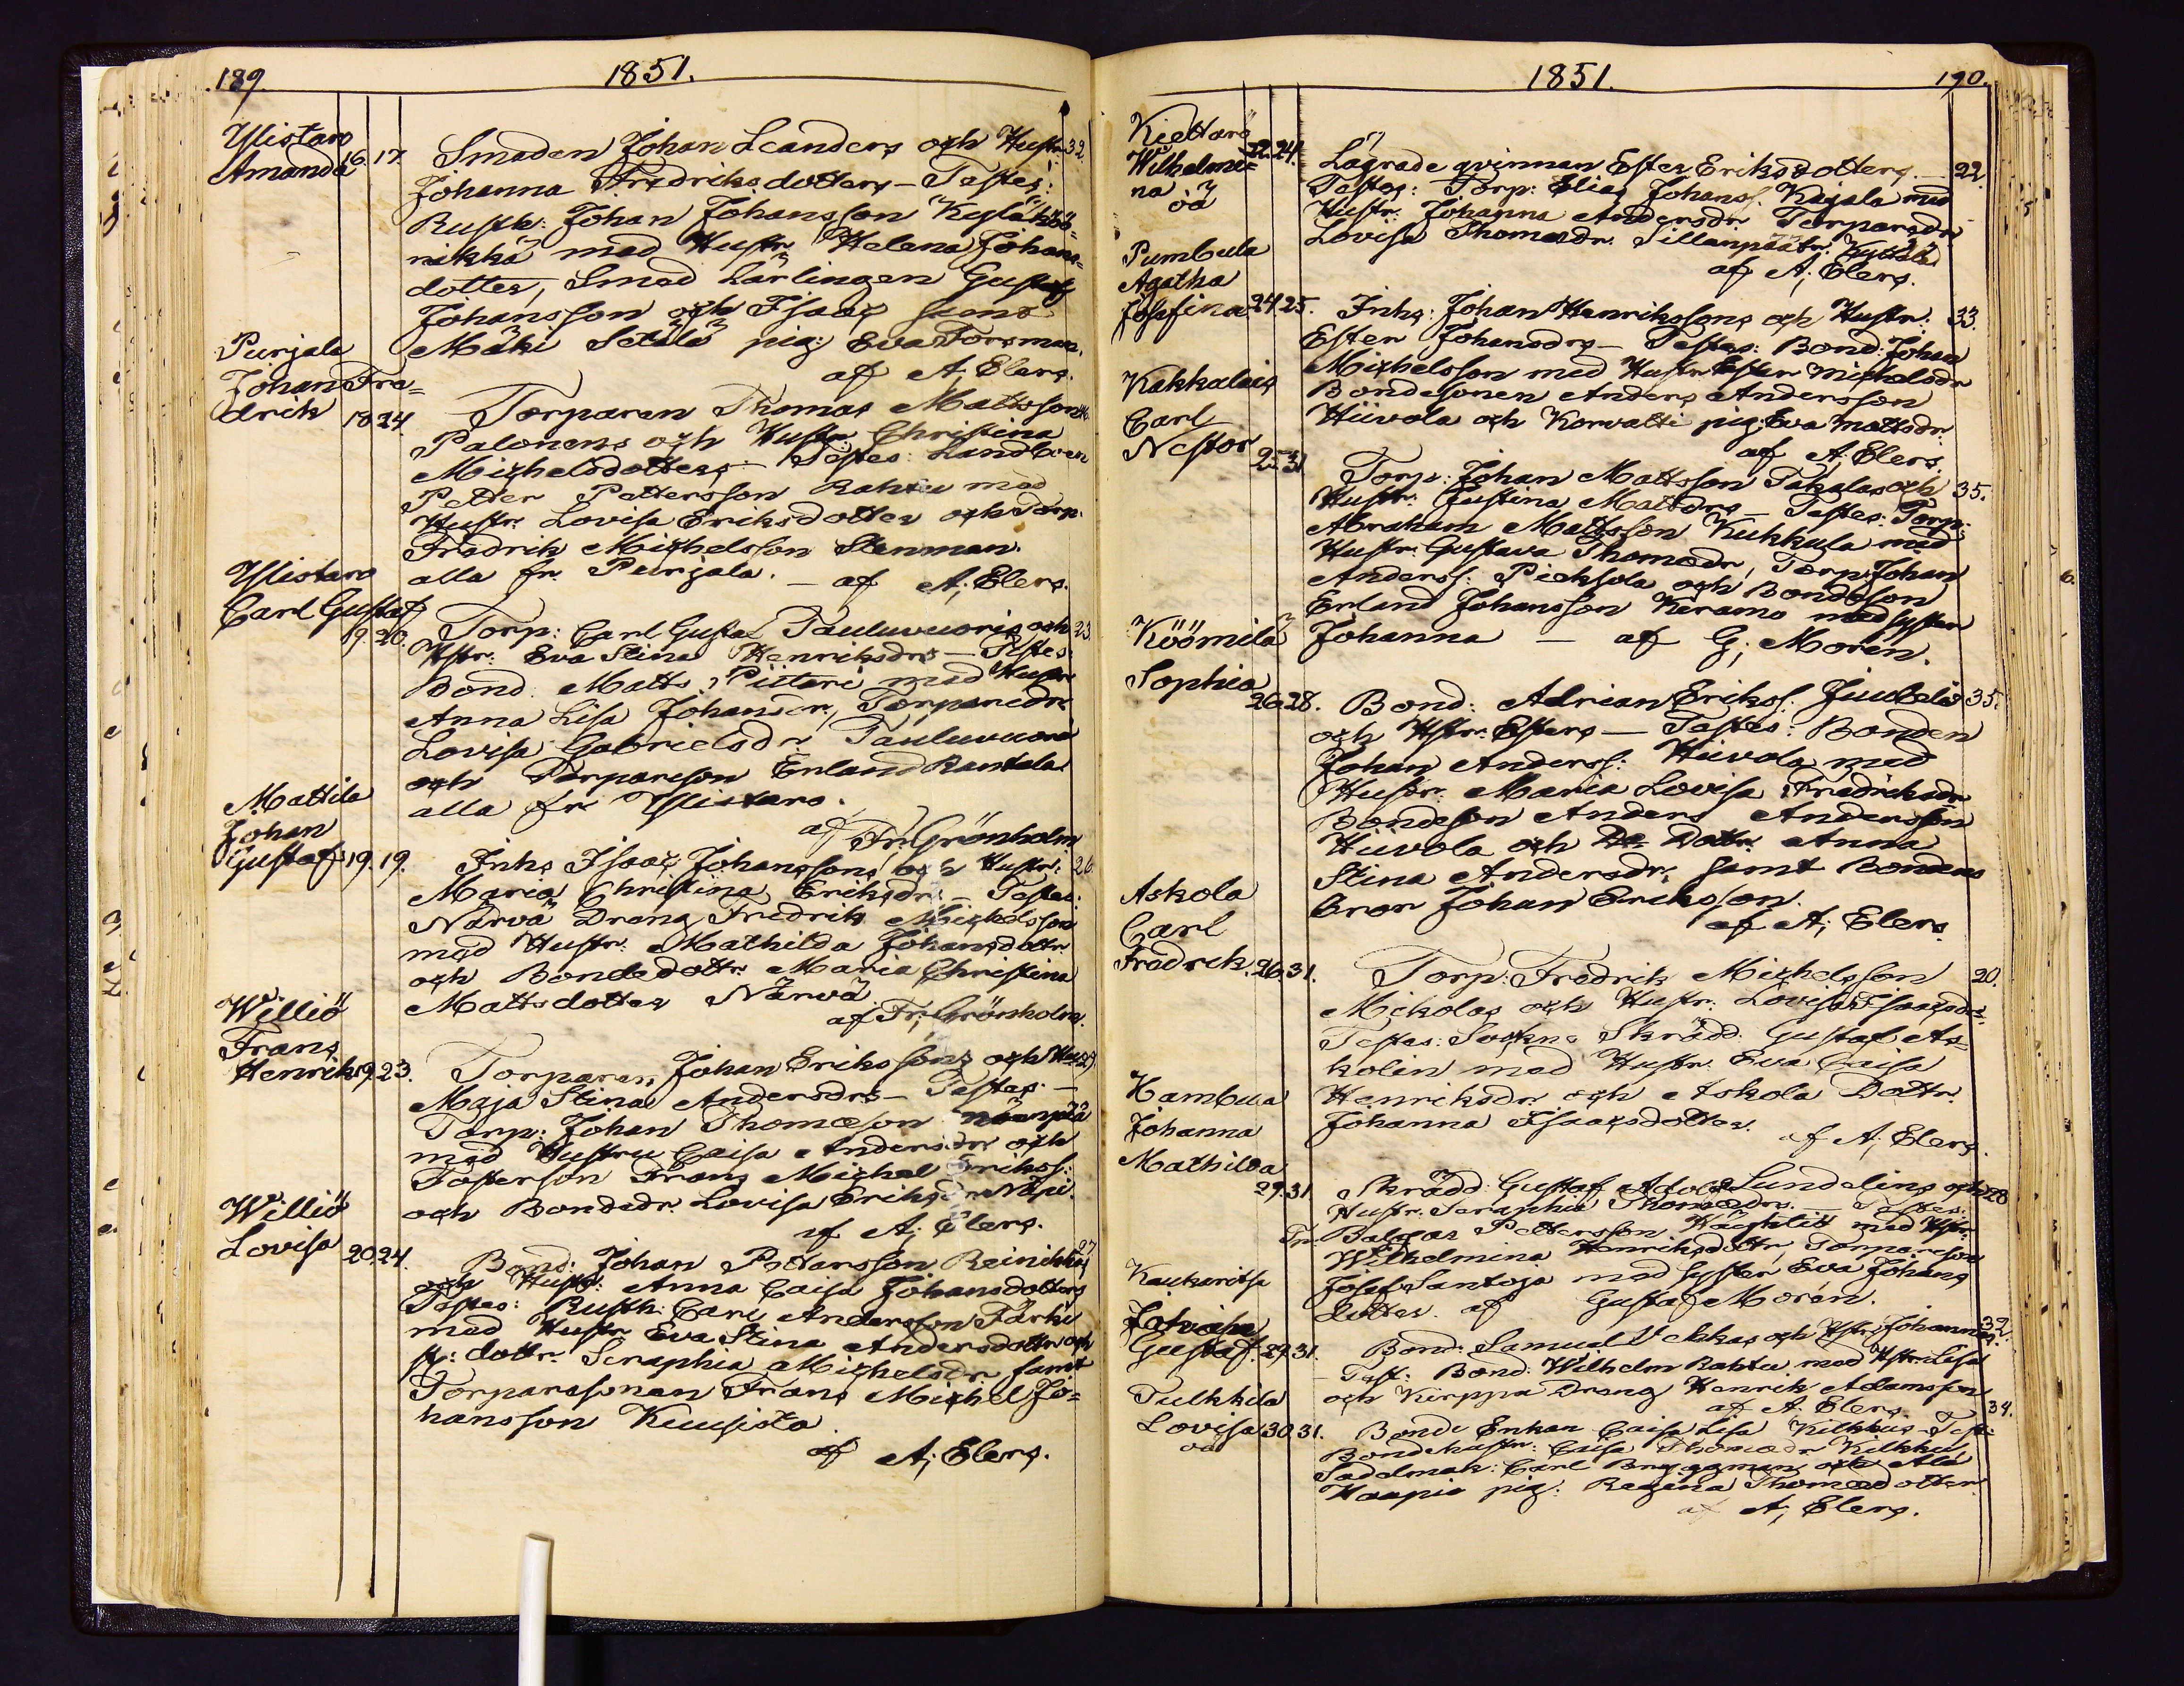 189.
1851.
Ylistaro
Amanda 16. 17. Smeden Johan Leanders och Hustr: 32.
Johanna Fredriksdotters - Testes:
Rusth: Johan Johansson Kylä
nikkä med Hustr. Helena Johans=
dotter, Smed Lärlingen Gustaf
Johansson och Isaac
Mäki Setälä pig: Eva Forsman.
af A. Elers.
Purjala
Johan Fre=
drik 18 24. Torparen Thomas Mattsson
Palonens och Hustr. Christina
Michelsdotters - Testes: Landboen
Petter Pettersson Rahtu med
Hustr. Lovisa Eriksdotter och Torp.
Fredrik Michelsson Stenman.
alla fr. Purjala. - af A; Elers.
Ylistaro
Carl Gustaf
19. 20. Torp: Carl Gustaf Tauluvuoris och 23
Hstr: Eva Stina Henriksdrs - Testes:
Bond. Matts Piitari med Hustr
Anna Lisa Johansdr, Torparedr
Lovisa Gabrielsdr Tauluvuori
och Torpareson Erland Rantala
alla fr. Ylistaro.
af Fr: Grönholm
Mattila
Johan
Gustaf 19. 19. Inhs Isaac Johanssons och Hustr: 26.
Maria Christina Eriksdrs - Testes:
Närvä Dräng Fredrik Michelsson
med Hustr. Mathilda Johansdottr
och Bondedottr. Maria Christina
Mattsdotter Närvä.
af Fr; Grönholm.
Williö
Frans
Henrik 19. 23. Torparen Johan Erikssons och
Maja Stina Andersdrs - Testes. -
Torp: Johan Thomasson
med Hustru Caisa Andersdr och
Fosterson Frans Michel Erikss:
och Bondedr. Lovisa Eriksdr Näpi
af A; Elers.
Williö
Lovisa 20. 24. Bond: Johan Pettersson Reinikka 27.
och Hustr: Anna Caisa Johansdotters
Testes: Rusth. Carl Andersson Tärki
med Hustr Eva Stina Andersdottr och
st: dottr. Seraphia Michelsdr samt
Torparesonen Frans Michel Jo=
hansson Kuusisto
af A; Elers.
1851.
190.
Wilhelmi=
na oä 22. 24. Lägrade qvinnan Ester Eriksdotters - 22.
Testes: Torp: Elias Johanss. Kajala med
Hustr. Johanna Andersdr Torparedr
Lovisa Thomasdr. Sillanpää fr.
af A; Elers.
Pumbula
Agatha
Josefina 24. 25. Inhs: Johan Henrikssons och Hustr. 33.
Ester Johansdrs - Testes: Bond: Johan
Michelsson med Hustr Ester Michelsdr
Bondesonen Anders Andersson
Hiivola och Korvatti pig Eva Mattsdr.
af A. Elers.
Kakkalais
Carl
Nestor 25. 31. Torp: Johan Mattsson Takalas och 35.
Hustr. Justina Mattdrs - Testes: Torp:
Abraham Mattsson Kukkula med
Hustr: Gustava Thomasdr, Torp. Johan
Anderss: Pieksola och Bondeson
Erland Johansson Keramo med syster
Johanna - af G; Moren.
Köömilä
Sophia
26. 28. Bond: Adrian Erikss. Juubela 35.
och Hstr. Esters - Testes: Bonden
Johan Anderss: Hiivola med
Hustr. Maria Lovisa Fredriksdr
Bondeson Anders Andersson
Hiivola och Do Dottr. Anna
Stina Andersdr. samt Bondens
bror Johan Eriksson.
af A; Elers.
Askola
Carl
Fredrik 26. 31. Torp: Fredrik Michelsson 20.
Mickolas och Hustr. Lovisa Isaacsdrs.
Testes: Sockne Skrädd. Gustaf As=
kolin med Hustr. Eva Caisa
Henriksdr och Askola Dottr.
Johanna Isaacsdotter.
af A; Elers.
Hambua
Johanna
Mathilda
29. 31. Skrädd: Gustaf Adolf Sundelins och 28
Hustr. Seraphia Thomædrs. - Testes:
Balzar Pettersson med Hstr.
Wilhelmina Henriksdottr, Torpareson
Josef Santoja med syster Eva Johans
dotter. af Gustaf Moren.
Kaukaritsa
Gustaf. 29. 31. Bond: Samuel Vekkas och Hstr Johannas 32.
Test: Bond: Wilhelm Rahtu med Hstr. Lisa
och Kirppu Dräng Henrik Adamsson
af A. Elers.
Pulkkila
Lovisa 30. 31. Bonde Enkan Caisa Lisa Kilkkus - Test: 34.
oä
Bondehustr: Caisa Thomædr Kilkku
Sadelmak: Carl Bryggman och Ala
Haapio pig: Regina Thomædotter
af A; Elers.